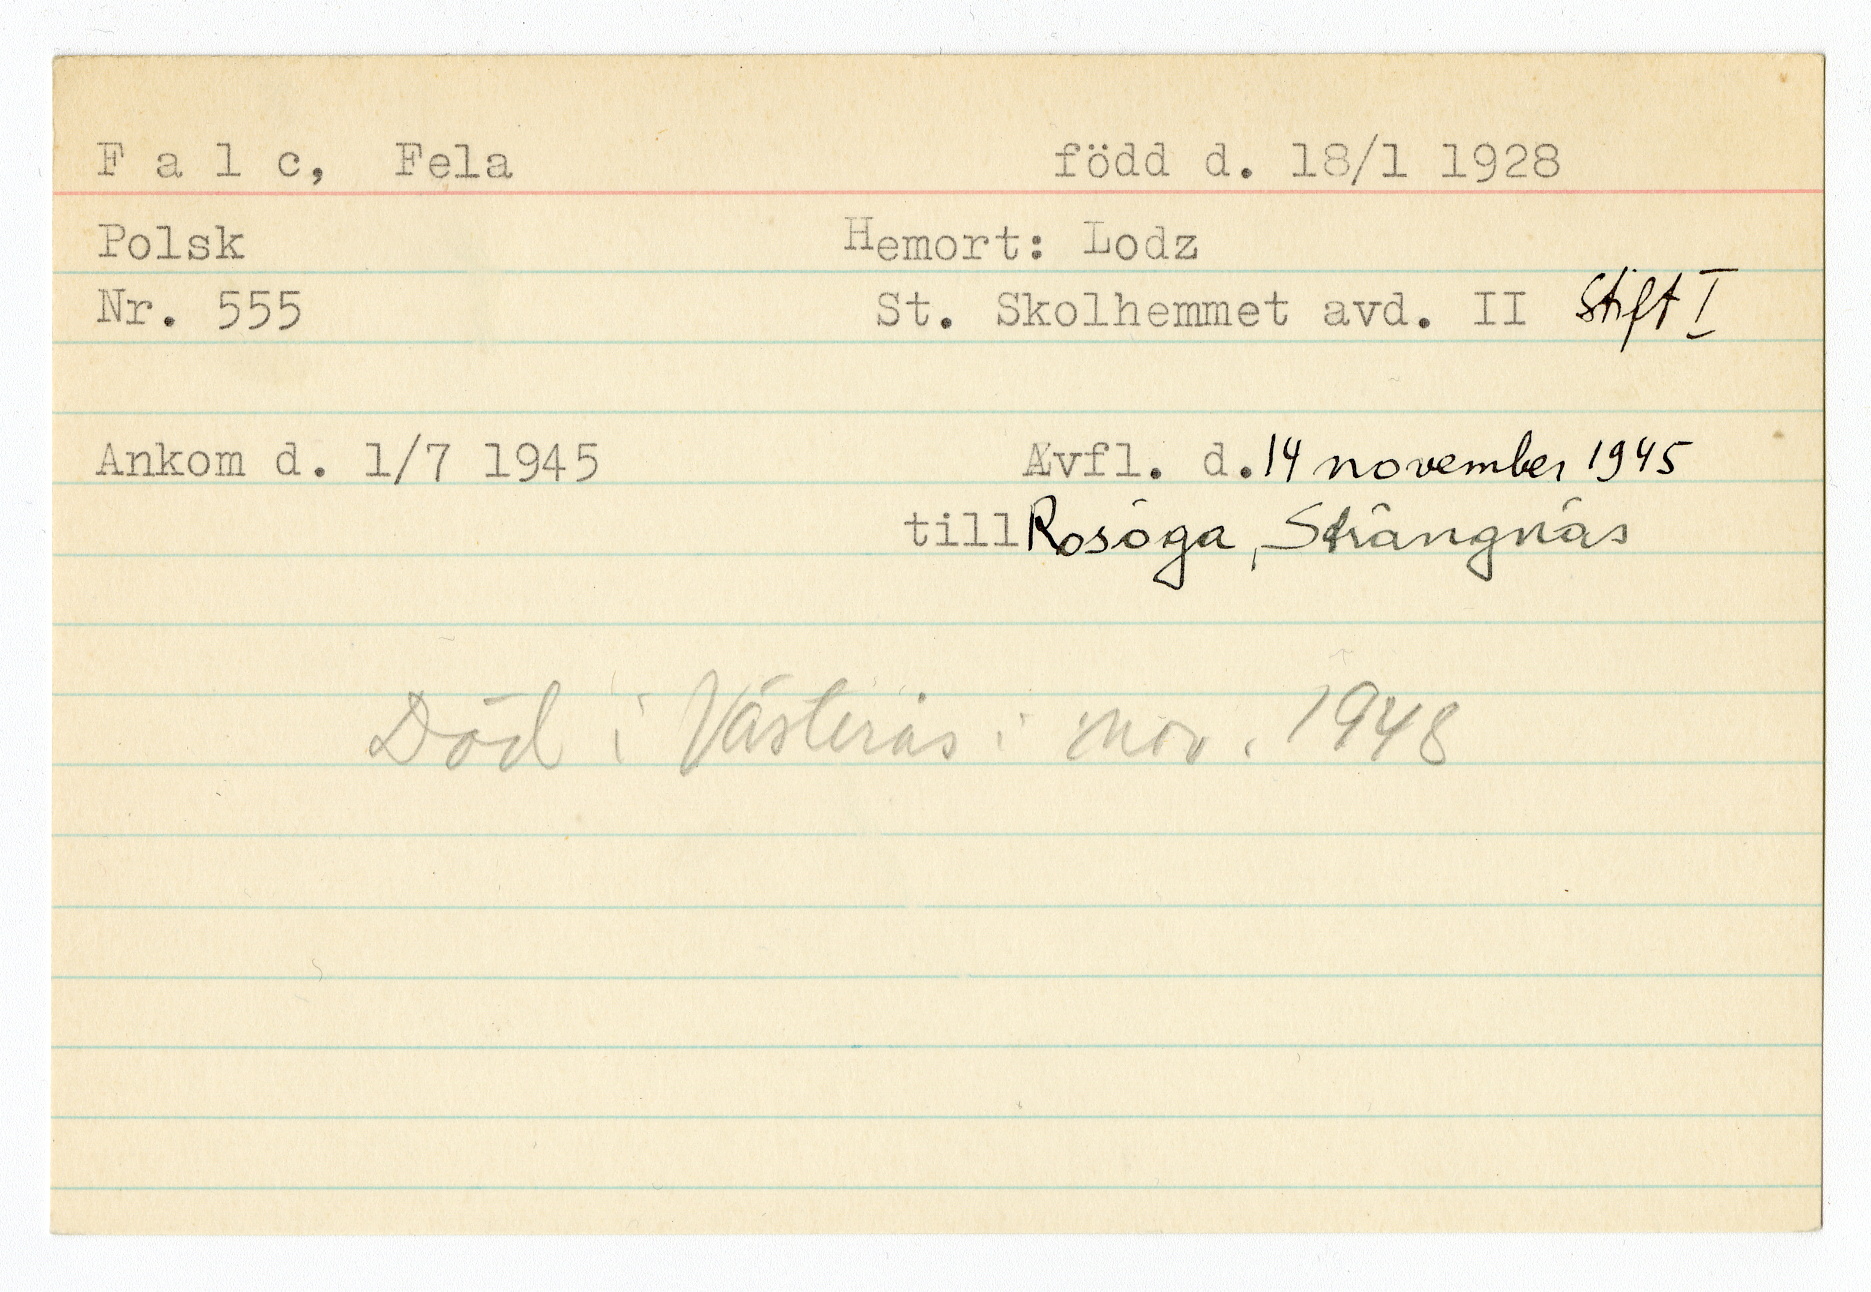 F a l c, Fela född d. 18/1 1928
Polsk Hemort: Lodz
Nr. 555 St. Skolhemmet avd. II Stift I
Ankom d. 1/7 1945 Avfl. d. 14 november 1945
till Rosöga, Strängnäs
Död i Västerås i nov. 1948